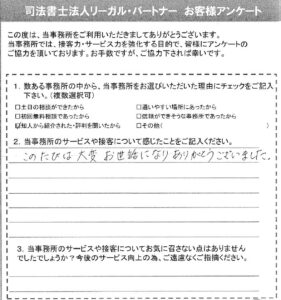 司法書士法人リーガル・パートナー お客様アンケート
この度は、当事務所をご利用いただきましてありがとうございます。
当事務所では、接客力・サービス力を強化する目的で、皆様にアンケートの
ご協力を頂いております。お手数ですが、ご協力下されば幸いです。
1. 数ある事務所の中から、当事務所をお選びいただいた理由にチェックをご記入
下さい。（複数選択可）
□土日の相談ができたから □通いやすい場所にあったから
□初回無料相談であったから □信頼ができそうな事務所であったから
☑知人から紹介された・評判を聞いたから □その他（ ）
2. 当事務所のサービスや接客について感じたことをご記入ください。
このたびは大変お世話になりありがとうございました。
3. 当事務所のサービスや接客についてお気に召さない点はありません
でしたでしょうか？今後のサービス向上の為、ご遠慮なくご指摘ください。